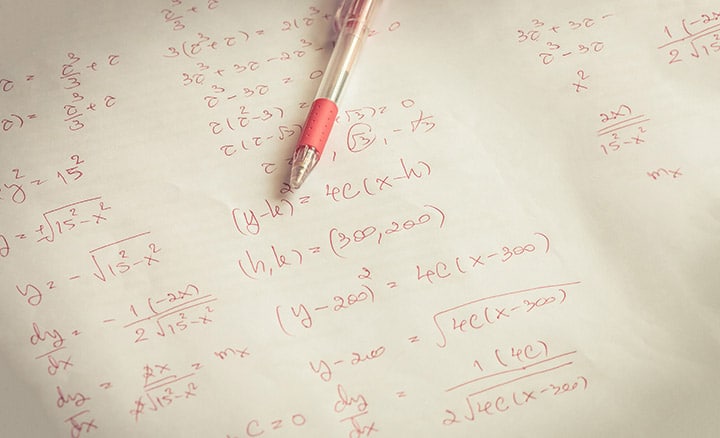 τ³/3 + τ
3(τ² + τ) = 2(τ³
τ = τ³/3 + τ
3τ³ + 3τ - 2τ³ - = 0
τ³/3 + τ
τ³ - 3τ = 0
τ(τ² - 3) =
τ(τ - √3) √3) = 0
, √3, -√3
y² = 15²
= ±√(15² - x²)
y = -√(15² - x²)
dy/dx = -1(-2x)/(2√(15² - x²))
dy/dx = 2x/(2√(15² - x²)) = mx
(y - k)² = 4C(x - h)
(h, k) = (300, 200)
(y - 200)² = 4C(x - 300)
y - 200 = √(4C(x - 300))
dy/dx = 1(4C)/(2√(4C(x - 300)))
C = 0
3τ³ + 3τ -
τ³ - 3τ
x²
1(-2x)/(2√15²
2x)/(15² - x²)
mx